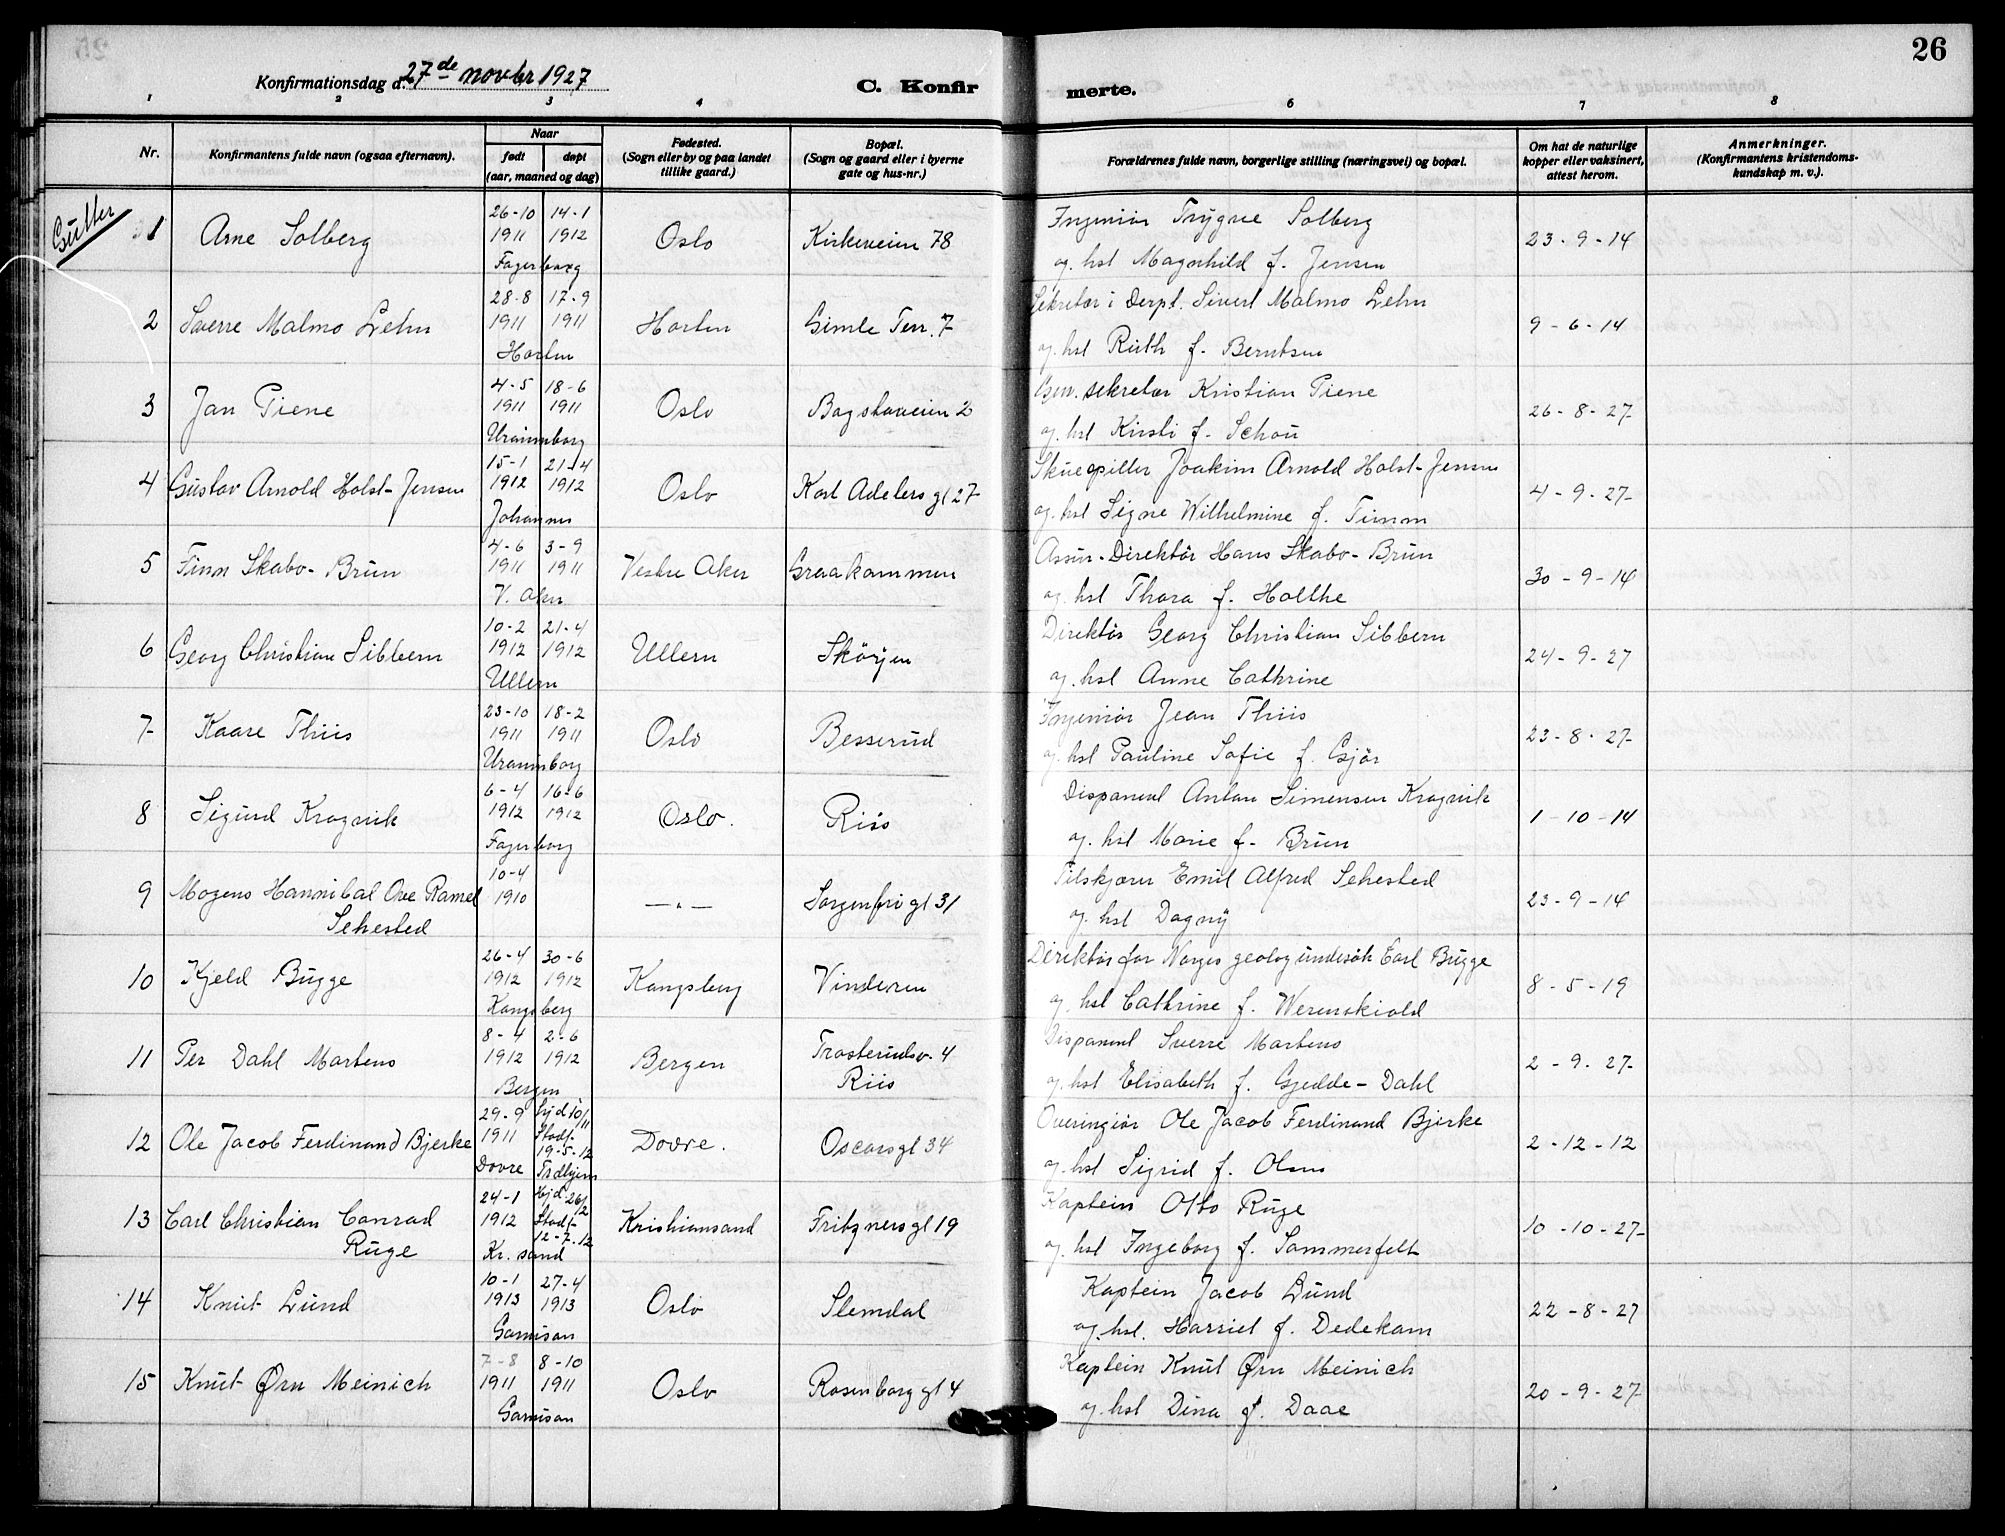 26
Konfirmationsdag d. 27de novbr 1927
C. Konfirmerte.
1 2 3 4 6 7 8
Nr.
Konfirmantens fulde navn (ogsaa efternavn).
Naar
født
døpt
(aar, maaned og dag)
Fødested.
(Sogn eller by og paa landet
tillike gaard.)
Bopæl.
(Sogn og gaard eller i byerne
gate og hus-nr.)
Forældrenes fulde navn, borgerlige stilling (næringsvei) og bopæl.
Om hat de naturlige
kopper eller vaksinert,
attest herom.
Anmerkninger.
(Konfirmantens kristendoms-
kundskap m. v.).
Gutter
1 Arne Solberg 26-10 1911 14-1 1912 Fagerborg Oslo Kirkeveien 78
Ingeniør Trygve Solberg
og. hst Magnhild f. Jensen
23-9-14
2 Sverre Malmo Lehn 28-8 1911 17-9 1911 Horten Horten Gimle Terr. 7
Sekretær i Derpt. Sivert Malmo Lehn
og. hst Ruth f. Berntsen
9-6-14
3 Jan Piene 4-5 1911 18-6 1911 Uranienborg Oslo Bogstaveien 2
Gen. sekretær Kristian Piene
og. hst Kirsti f. Schou
26-8-27
4 Gustav Arnold Holst-Jensen 15-1 1912 21-4 1912 Johannes Oslo Karl Adelers gt 27
Skuespiller Joakim Arnold Holst-Jensen
og. hst Signe Wilhelmine f. Timm
4-9-27
5 Finn Skabo-Brun 4-6 1911 3-9 1911 V. Aker Vestre Aker Graakammen
Assur.-Direktør Hans Skabo-Brun
og. hst Thora f. Holthe
30-9-14
6 Georg Christian Sibbern 10-2 1912 21-4 1912 Ullern Ullern Skøyen
Direktør Georg Christian Sibbern
og. hst Anne Cathrine
24-9-27
7 Kaare Thiis 23-10 1911 18-2 1911 Uranienborg Oslo Besserud
Ingeniør Jean Thiis
og. hst Pauline Sofie f. Gjør
23-8-27
8 Sigurd Kragvik 6-4 1912 16-6 1912 Fagerborg Oslo. Riis
Disponent Anton Simensen Kragvik
og. hst Marie f. Brun
1-10-14
9 Mogens Hannibal Ove Ramel
Sehested 10-4 1910 —"— Sorgenfrigt 31
Tilskjærer Emil Alfred Sehested
og. hst Dagny
23-9-14
10 Kjeld Bugge 26-4 1912 30-6 1912 Kongsberg Kongsberg Vinderen
Direktør for Norges geolog undersøk Carl Bugge
og. hst Cathrine f. Werenskiold
8-5-19
11 Per Dahl Martens 8-4 1912 2-6 1912 Bergen Bergen Trosterudv. 4
Riis
Disponent Sverre Martens
og. hst Elisabeth f. Gjedde-Dahl
2-9-27
12 Ole Jacob Ferdinand Bjerke 29-9 1911 hjd 10/11 Stadf. 19-5-12 Dovre Trdhjem Dovre. Oscarsgt 34
Overingiør Ole Jacob Ferdinand Bjerke
og. hst Sigrid f. Olsen
2-12-12
13 Carl Christian Conrad
Ruge 24-1 1912 Hjd 26/2 Stadf. 12-7-12 Kr. sand Kristiansand Fritznersgt 19
Kaptein Otto Ruge
og. hst Ingeborg f. Sommerfelt
10-10-27
14 Knut Lund 10-1 1913 27-4 1913 Garnison Oslo Slemdal
Kaptein Jacob Lund
og. hst. Harriet f. Dedekam
22-8-27
15 Knut Ørn Meinich 7-8 1911 8-10 1911 Garnison Oslo Rosenborggt 4
Kaptein Knut Ørn Meinich
og. hst Dina f. Daae
20-9-27